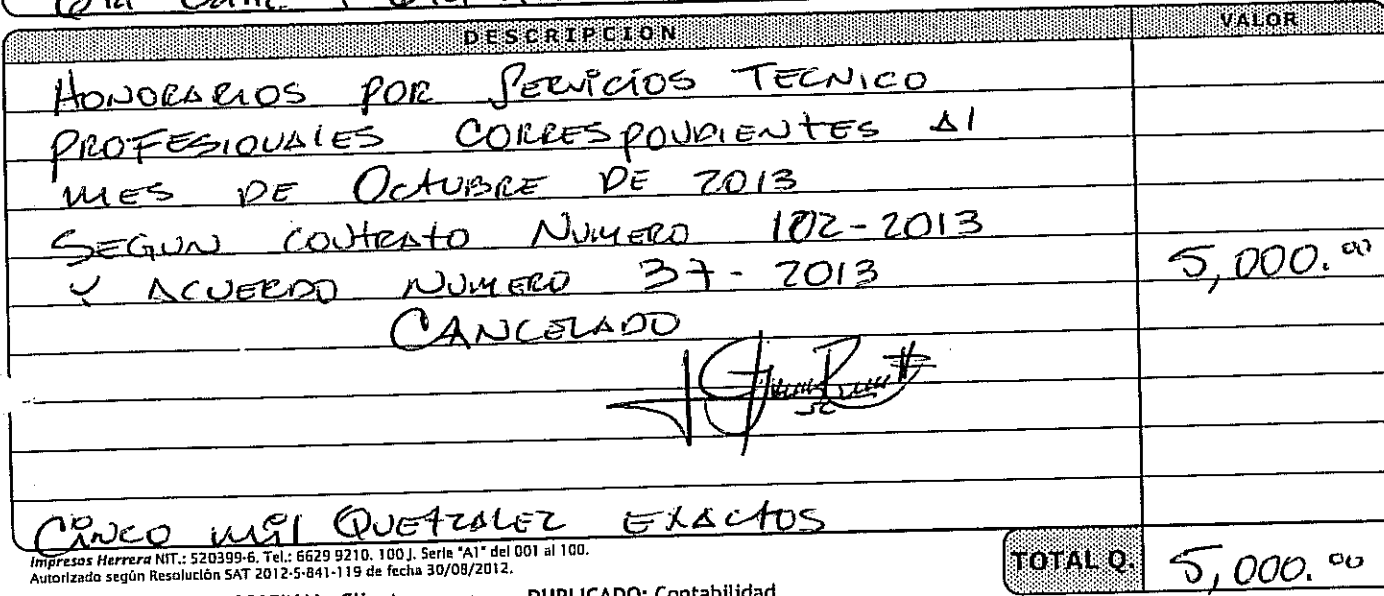 DESCRIPCION VALOR
HONORARIOS POR SERVICIOS TECNICO
PROFESIONALES CORRESPONDIENTES Al
MES DE OCTUBRE DE 2013
SEGUN CONTRATO NUMERO 102-2013
Y ACUERDO NUMERO 37-2013 5,000.00
CANCELADO
CINCO Mil QUETZALEZ EXACtOS
Impresos Herrera NIT.: 520399-6. Tel.: 6629 9210. 100 J. Serie "A1" del 001 al 100.
Autorizado según Resolución SAT 2012-5-841-119 de fecha 30/08/2012.
TOTAL Q. 5,000.00
DUPLICADO: Contabilidad